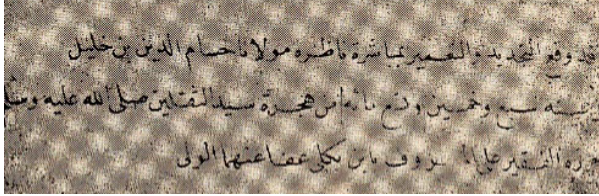 قد وقع التجديد و التعمير بمباشرة ناظره مولانا حسام الدين بن خليل
سنه سبع وخمسين وتسع مائه من هجرة سيد الثقلين صلى الله عليه وسلم
الفقير على بابن بكلى عفا عنهما الولى